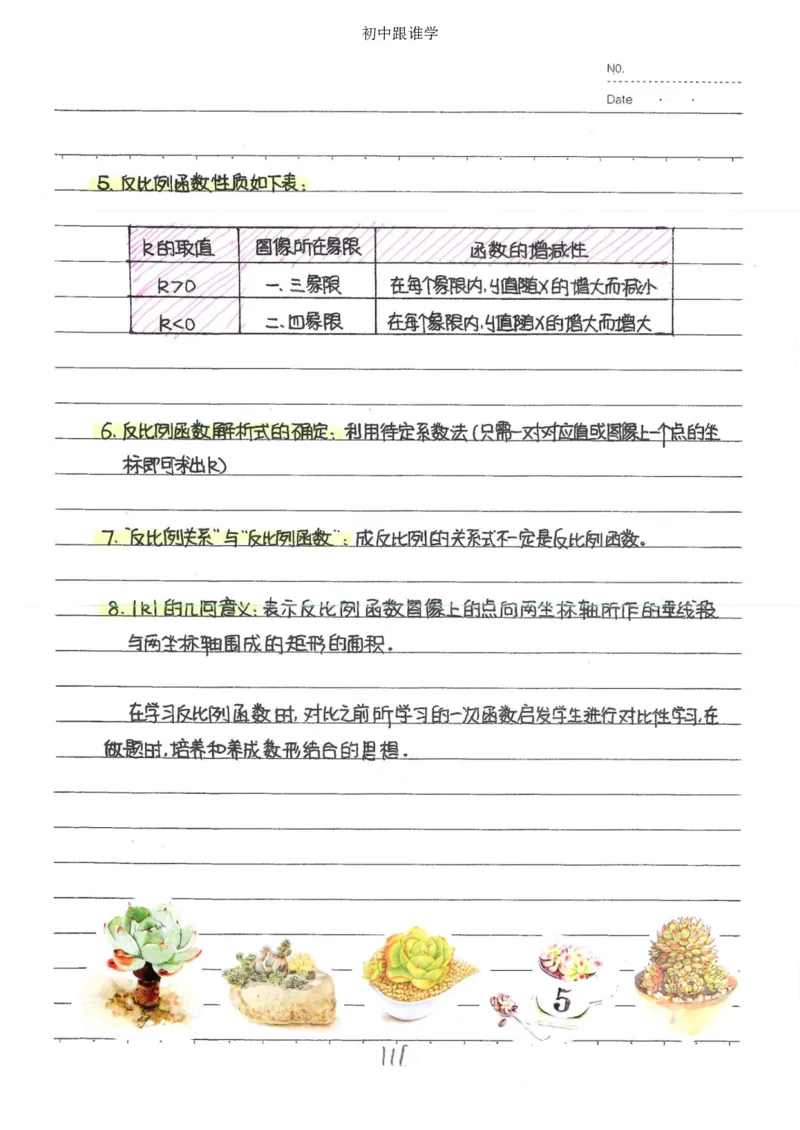 初中跟谁学
NO.
Date
5. 反比例函数性质如下表:
k的取值 图像所在象限 函数的增减性
k>0 一、三象限 在每个象限内,y值随x的增大而减小
k<0 二、四象限 在每个象限内,y值随x的增大而增大
6. 反比例函数解析式的确定:利用待定系数法(只需一对对应值或图像上一个点的坐
标即可求出k)
7. "反比例关系"与"反比例函数":成反比例的关系式不一定是反比例函数。
8. |k|的几何意义:表示反比例函数图像上的点向两坐标轴所作的垂线段
与两坐标轴围成的矩形的面积.
在学习反比例函数时,对比之前所学习的一次函数启发学生进行对比性学习,在
做题时,培养和养成数形结合的思想.
5
111